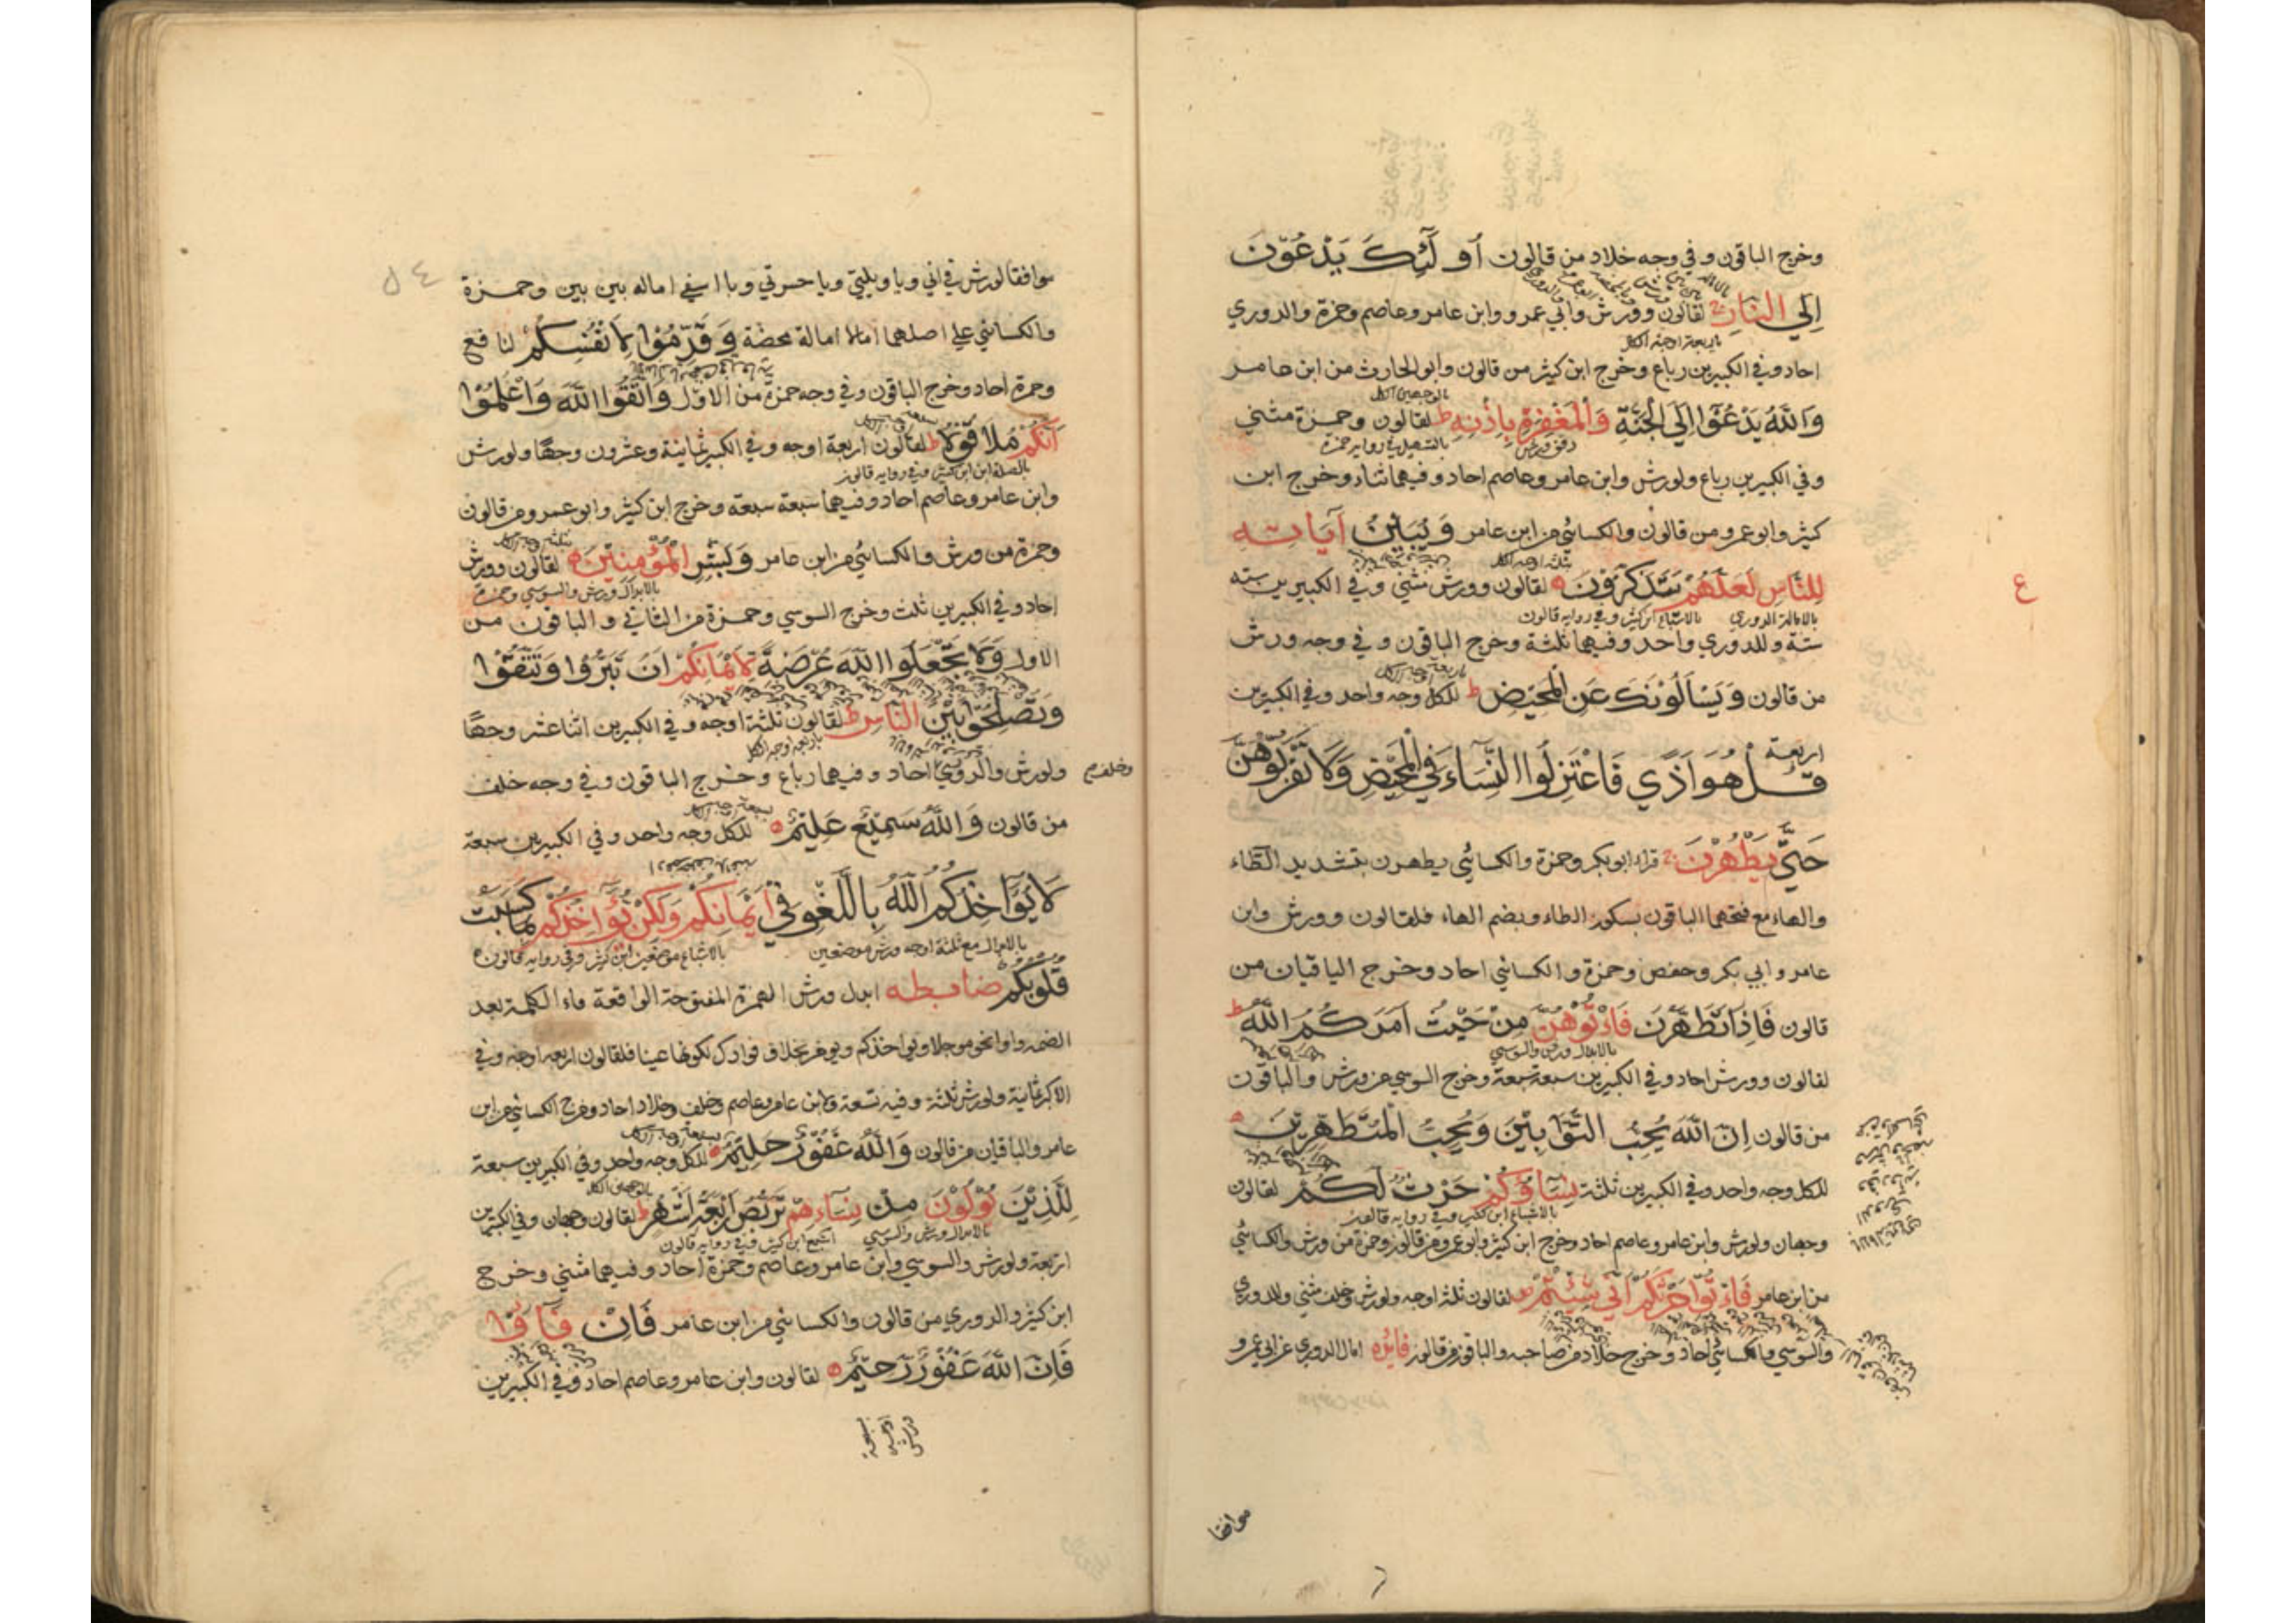 وخرج الباقون وفي وجه خلاد من قالون أولَٓئِكَ يَدْعُوْنَ
اِلَي النَّارِ لقالون وورش وأبي عمرو وابن عامر وعاصم وحمزة والدوري
باربعة اوجه الكل
احاد وفي الكبيرين رباع وخرج ابن كثير من قالون وابو الحارث من ابن عامر
وَاللّٰهُ يَدْعُوْٓا اِلَي الْجَنَّةِ وَالْمَغْفِرَةِ بِاِذْنِهٖ ط لقالون وحمزة مثني
بالتسهيل في رواية حمزة
وفي الكبيرين رباع ولورش وابن عامر وعاصم احاد وفيهما ثناء وخرج ابن
كثير وابو عمرو من قالون والكسائي من ابن عامر وَيُبَيِّنُ آيَاتِهِ
ثلثة اوجه الكل
لِلنَّاسِ لَعَلَّهُمْ يَتَذَكَّرُوْنَ لقالون وورش مثني وفي الكبيرين ستة
بالامالة الدوري بالاشباع ابن كثير وفي رواية قالون
ستة وللدوري واحد وفيهما ثلثة وخرج الباقون وفي وجه ورش
من قالون وَيَسْاَلُوْنَكَ عَنِ الْمَحِيْضِ ط للكل وجه واحد وفي الكبيرين
اربعة
قُلْ هُوَ اَذًي فَاعْتَزِلُوا النِّسَاءَ فِي الْمَحِيْضِ وَلَا تَقْرَبُوْهُنَّ
حَتّٰي يَطْهُرْنَ قراء ابو بكر وحمزة والكسائي يطهرن بتشديد الطاء
والهاء مع فتحهما الباقون بسكون الطاء وبضم الهاء فلقالون وورش وابن
عامر وابي بكر وحفص وحمزة والكسائي احاد وخرج الباقيان من
قالون فَاِذَا تَطَهَّرْنَ فَاْتُوْهُنَّ مِنْ حَيْثُ اَمَرَكُمُ اللّٰهُ ط
بالابدال ورش والسوسي
لقالون وورش احاد وفي الكبيرين سبعة سبعة وخرج السوسي من ورش والباقون
من قالون اِنَّ اللّٰهَ يُحِبُّ التَّوَّابِيْنَ وَيُحِبُّ الْمُتَطَهِّرِيْنَ
للكل وجه واحد وفي الكبيرين ثلثة نِسَاؤُكُمْ حَرْثٌ لَكُمْ لقالون
بالاشباع ابن كثير وفي رواية قالون
وجهان ولورش وابن عامر وعاصم احاد وخرج ابن كثير وابو عمرو من قالون وحمزة من ورش والكسائي
من ابن عامر فَاْتُوْا حَرْثَكُمْ اَنّٰي شِئْتُمْ لقالون ثلثة اوجه ولورش وخلف مثني وللدوري
والسوسي والكسائي احاد وخرج خلاد من صاحبه والباقون من قالون فايده امال الدوري عن ابي عمرو
ع
موافقا
موافقا لورش في اني ويا ويلتي ويا حسرتي ويا اسفي اماله بين بين وحمزة
والكسائي علي اصلهما امالا امالة محضة وَقَدِّمُوْا لِاَنْفُسِكُمْ لنافع
وحمزة احاد وخرج الباقون وفي وجه حمزة من الاول وَاتَّقُوا اللّٰهَ وَاعْلَمُوْٓا
اَنَّكُمْ مُلَاقُوْهُ ط لقالون اربعة اوجه وفي الكبير ثمانية وعشرون وجها ولورش
بالصلة ابن كثير وفي رواية قالون
وابن عامر وعاصم احاد وفيهما سبعة سبعة وخرج ابن كثير وابو عمرو من قالون
وحمزة من ورش والكسائي من ابن عامر وَبَشِّرِ الْمُؤْمِنِيْنَ لقالون وورش
بالابدال ورش والسوسي وحمزة
احاد وفي الكبيرين ثلث وخرج السوسي وحمزة من الثاني والباقون من
الاول وَلَا تَجْعَلُوا اللّٰهَ عُرْضَةً لِاَيْمَانِكُمْ اَنْ تَبَرُّوْا وَتَتَّقُوْا
وَتُصْلِحُوْا بَيْنَ النَّاسِ ط لقالون ثلثة اوجه وفي الكبيرين اثنا عشر وجها
باربعة اوجه الكل
وخلف
ولورش والدوري احاد وفيهما رباع وخرج الباقون وفي وجه خلف
من قالون وَاللّٰهُ سَمِيْعٌ عَلِيْمٌ للكل وجه واحد وفي الكبيرين سبعة
لَا يُؤَاخِذُكُمُ اللّٰهُ بِاللَّغْوِ فِيْٓ اَيْمَانِكُمْ وَلٰكِنْ يُؤَاخِذُكُمْ بِمَا كَسَبَتْ
بالابدال مع ثلثة اوجه ورش موضعين بالاشباع موضعين ابن كثير وفي رواية قالون
قُلُوْبُكُمْ ضابطه ابدل ورش الهمزة المفتوحة الواقعة فاء الكلمة بعد
الضمه واوا نحو موجلا ويواخذكم ويوخر بخلاف فوادك لكونها عينا فلقالون اربعة اوجه وفي
الاكبر ثمانية ولورش ثلثة وفيه تسعة ولابن عامر وعاصم وخلف وخلاد احاد وخرج الكسائي من ابن
عامر والباقيان من قالون وَاللّٰهُ غَفُوْرٌ حَلِيْمٌ للكل وجه واحد وفي الكبيرين سبعة
لِلَّذِيْنَ يُؤْلُوْنَ مِنْ نِسَاءِهِمْ تَرَبُّصُ اَرْبَعَةِ اَشْهُرٍ ط لقالون وجهان وفي الكبيرين
بالابدال ورش والسوسي اشبع ابن كثير وفي رواية قالون
اربعة ولورش والسوسي وابن عامر وعاصم وحمزة احاد وفيهما مثني وخرج
ابن كثير والدوري من قالون والكسائي من ابن عامر فَاِنْ فَاءُوْا
فَاِنَّ اللّٰهَ غَفُوْرٌ رَحِيْمٌ لقالون وابن عامر وعاصم احاد وفي الكبيرين